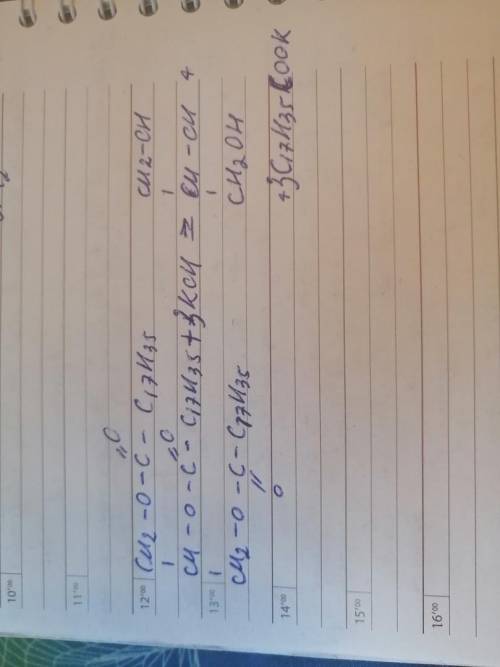 10'00
11'00
O
//
12'00 CH2-O-C-C17H35 CH2-CH
| // O |
CH-O-C-C17H35+3KCH = CH-CH +
13'00 | |
CH2-O-C-C17H35 CH2OH
//
14'00 O +3C17H35COOK
15'00
16'00